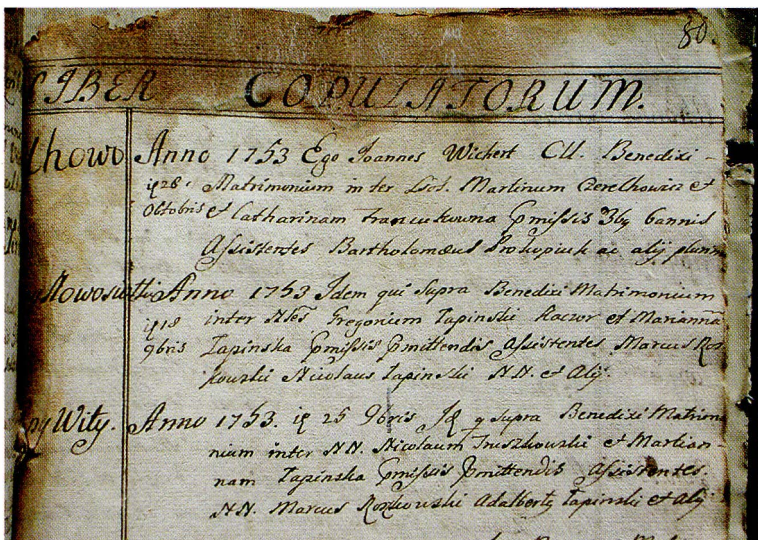 80.
LIBER COPULATORUM.
Chowo Anno 1753 Ego Joannes Wichert Benedixi -
28 Matrimonium inter Martinum Czerelhowicz et
Octobris et Catharinam pmissis 3bg bannis
Assistentes Bartholomæus Prokopiuk ac alij plurim
Anno 1753 Idem qui Supra Benedixi Matrimonium
18 inter Gregorium Łapinski Kaczor et Mariannã
9bris Łapinska pmissis pmittendis Assistentes Marcus Roz
kowski Nicolaus Łapinski NN. et Alij.
ny Wity. Anno 1753. 25 9bris q Supra Benedixi Matrimo
nium inter NN. Nicolaum Truszkowski et Marian-
nam Łapinska pmissis pmittendis Assistentes.
NN. Marcus Rozkowski Adalberty Łapinski et Alij